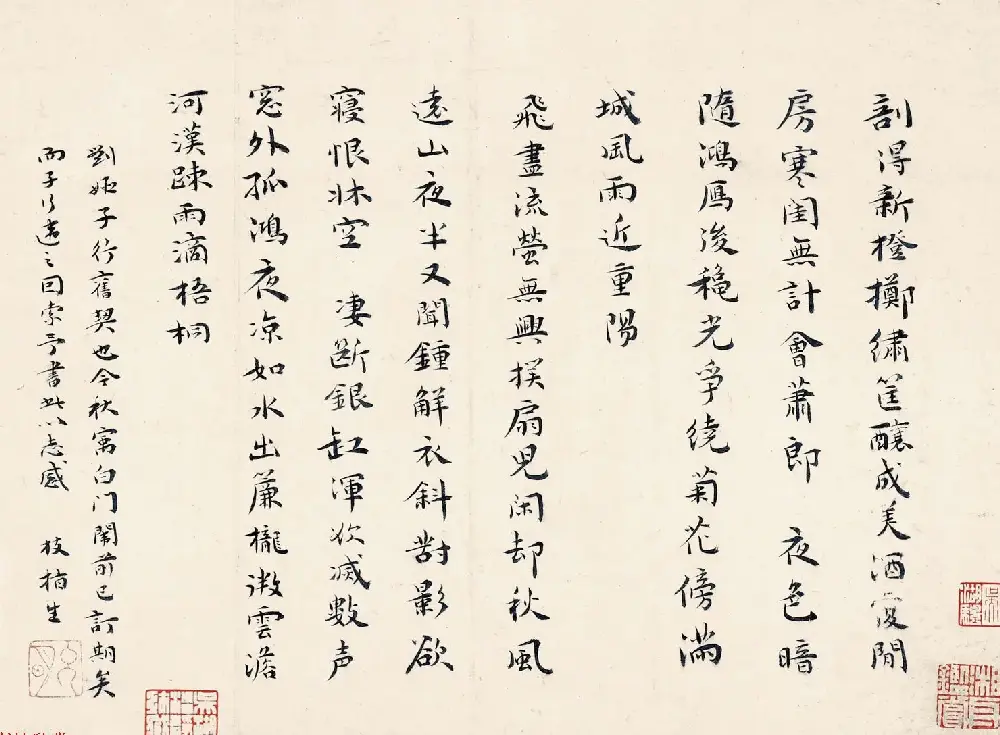 剖得新橙擲繡筐釀成美酒復閒
房寒閨無計會蕭郎 夜色暗
隨鴻雁後穐光爭繞菊花傍滿
城風雨近重陽
飛盡流螢無興撲扇兒閑却秋風
遠山夜半又聞鍾解衣斜對影欲
寢恨牀空 凄斷銀缸渾欲滅數声
窓外孤鴻夜凉如水出簾櫳微雲澹
河漢疎雨滴梧桐
劉姬子行舊契也今秋寓白门闈前已訂期矣
而子行遠之因索予書此以志感 枝栖生